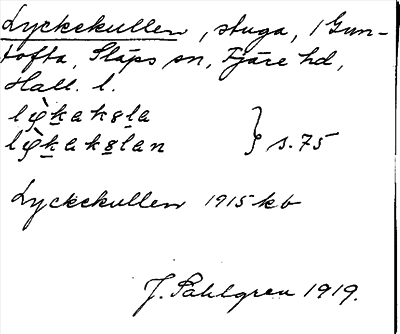 Lyckekullen, stuga, i Gun-
tofta, Släps sn, Fjäre hd,
Hall. l.
lỳkaksla
lỳkakslan } s. 75
Lyckekullen 1915 kb
J. Sahlgren 1919.